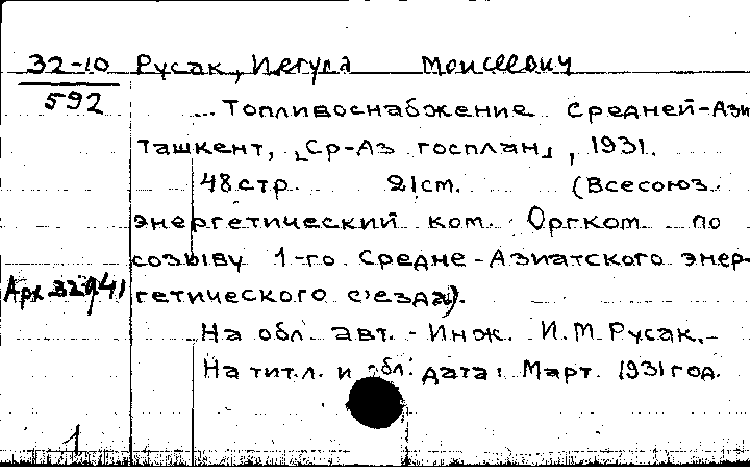 32-10 Русак, Иегуда Моисеевич
592
... Топливоснабжение Средней-Ази
Ташкент, [Ср-Аз госплан], 1931.
48 стр. 21 см. (Всесоюз.
энергетический ком. Оргком по
созыву 1-го Средне-Азиатского энер-
Арх гетического с'езда).
На обл. авт. - Инж. И.М. Русак.-
На тит.л. и обл. дата: Март 1931 год.
1